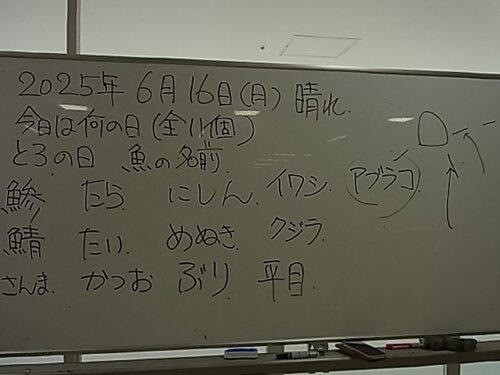 2025年 6月16日(月) 晴れ.
今日は何の日(全11個)
とろの日 魚の名前.
鯵 たら にしん. イワシ. アブラコ.
鯖 たい. めぬき. クジラ.
さんま. かつお ぶり. 平目.